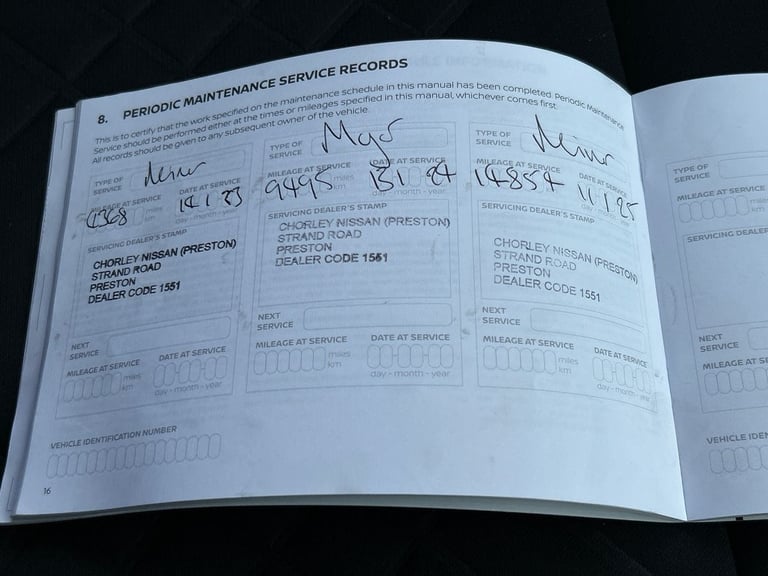 8. PERIODIC MAINTENANCE SERVICE RECORDS
This is to certify that the work specified on the maintenance schedule in this manual has been completed. Periodic Maintenance
Service should be performed either at the times or mileages specified in this manual, whichever comes first.
All records should be given to any subsequent owner of the vehicle.
TYPE OF
SERVICE
Minor
MILEAGE AT SERVICE
DATE AT SERVICE
4368 miles
km
14 1 23
day - month - year
SERVICING DEALER'S STAMP
CHORLEY NISSAN (PRESTON)
STRAND ROAD
PRESTON
DEALER CODE 1551
NEXT
SERVICE
MILEAGE AT SERVICE
DATE AT SERVICE
miles
km
day - month - year
TYPE OF
SERVICE
Major
MILEAGE AT SERVICE
DATE AT SERVICE
9495 miles
km
13 1 24
day - month - year
SERVICING DEALER'S STAMP
CHORLEY NISSAN (PRESTON)
STRAND ROAD
PRESTON
DEALER CODE 1551
NEXT
SERVICE
MILEAGE AT SERVICE
DATE AT SERVICE
miles
km
day - month - year
TYPE OF
SERVICE
Minor
MILEAGE AT SERVICE
DATE AT SERVICE
14854
11 1 25
SERVICING DEALER'S STAMP
CHORLEY NISSAN (PRESTON)
STRAND ROAD
PRESTON
DEALER CODE 1551
NEXT
SERVICE
MILEAGE AT SERVICE
DATE AT SERVICE
miles
km
day - month - year
VEHICLE IDENTIFICATION NUMBER
16
TYPE OF
SERVICE
MILEAGE AT SERVICE
SERVICING DEALER
NEXT
SERVICE
MILEAGE AT SE
VEHICLE IDEN